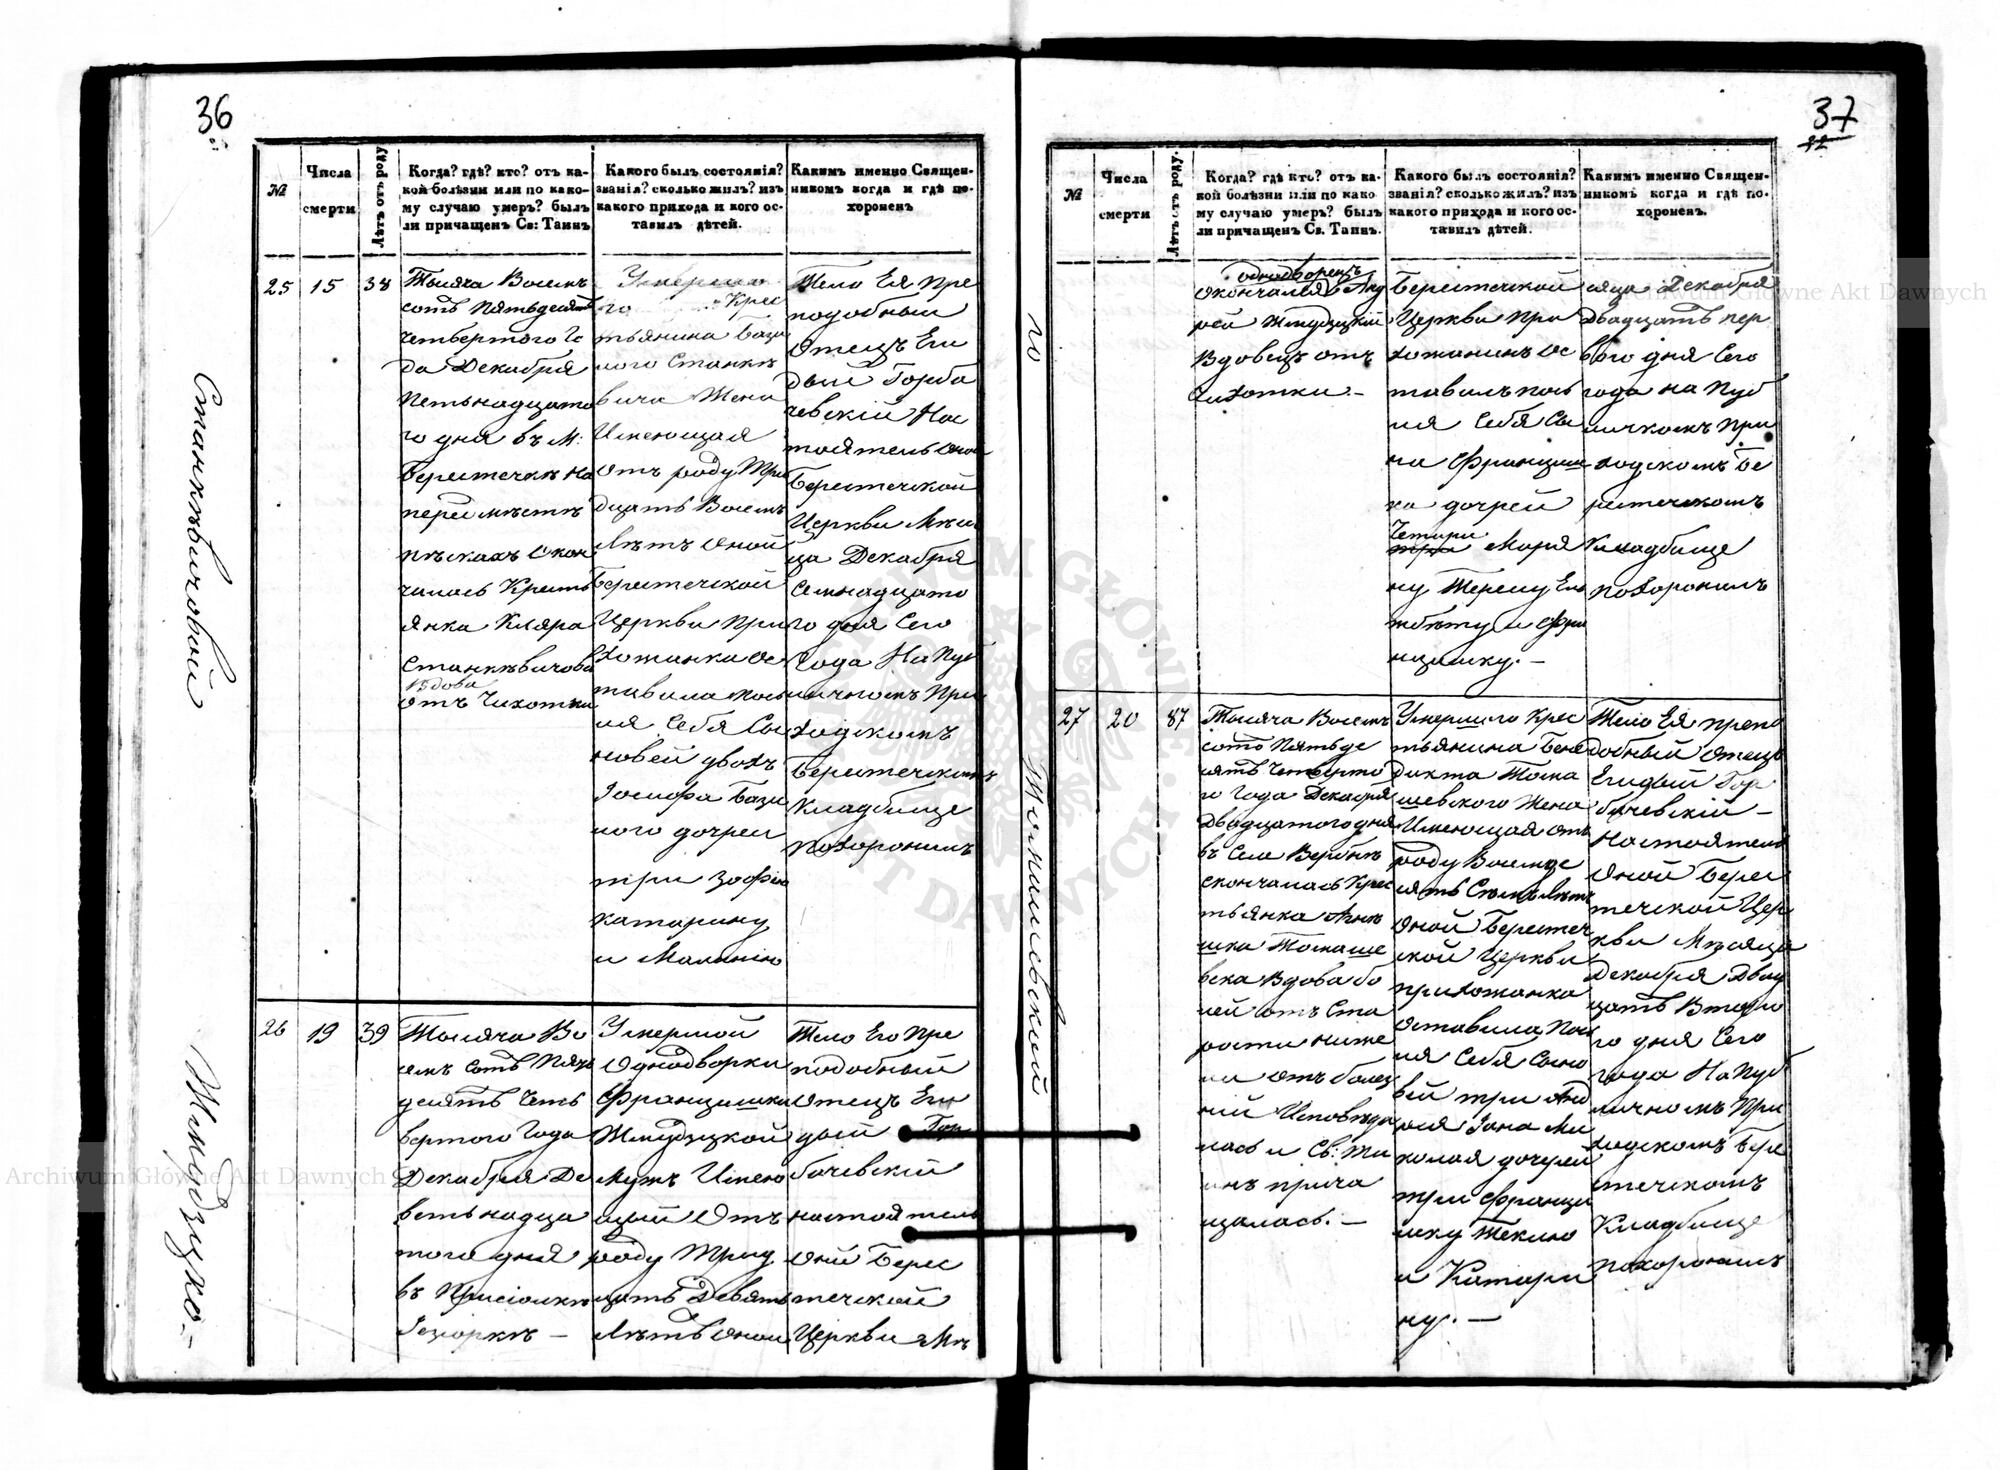 36
№
Числа
смерти
Лѣтъ отъ роду.
Когда? гдѣ? кто? отъ ка-
кой болѣзни или по како-
му случаю умеръ? былъ
ли причащенъ Св: Таинъ
Какого былъ состоянія?
званія? сколько жилъ? изъ
какого прихода и кого ос-
тавилъ дѣтей.
Какимъ именно Священ-
никомъ когда и гдѣ по-
хороненъ
Станкѣвичовой
25 15 38
Тысяча Восемь
сотъ Пятьдесятъ
Четвертого Го
да Декабря
Петьнадцато
го дня въ М:
Берестечкѣ на
пескахъ Скон
чалась Кресть
янка Кляра
Станкѣвичова
Вдова
отъ Чихотки
Умершаго
го Крес
тьянина Бази
лого Станкѣ
вича Жена
Имеющая
отъ роду Три
дцать Восемь
Лѣтъ Оной
Берестечской
Церкви При
хожанка Ос
тавила посъ
ля Себя Сы
новей двохъ
Іосифа Бази
лого дочреи
три Зофію
Катарину
и Маланію
Тело Ея Пре
подобный
Отецъ Еги
дый Горба
чевскій Нас
тоятель Оной
Берестечской
Церкви Мѣся
ца Декабря
Семнадцато
го дня Сего
Года На Пуб
личномъ При
ходскомъ
Берестечскомъ
Кладбище
похоронилъ
Жмудзцко-
26 19 39
Тысяча Во
емъ сотъ Пять
десятъ Четь
вертого Года
Декабря Де
ветьнадца
того дня
въ Присіолкѣ
Умершой
Однодворки
Францишки
Жмудзцкой
Мужъ Имею
щый Отъ
роду Трид
цать Девять
Лѣтъ Оной
Тело Его Пре
подобный
Отецъ Еги
дый Гор
бачевскій
настоятель
Оной Берес
течской
Церкви Мѣ
37
№
Числа
смерти
Лѣтъ отъ роду.
Когда? гдѣ кто? отъ ка-
кой болѣзни или по како
му случаю умеръ? былъ
ли причащенъ Св. Таинъ.
Какого былъ состоянія?
званія? сколько жилъ? изъ
какого прихода и кого ос-
тавилъ дѣтей.
Какимъ именно Священ-
никомъ когда и гдѣ по-
хороненъ.
го
однодворецъ
Скончался Анд
рей Жмудзцкій
Вдовецъ отъ
Чихотки.-
Берестечской
Церкви При
хожанинъ Ос
тавилъ посъ
ля Себя Сы
на Францишъ
ка дочрей
Четыри
три Маріа
ну Терезу Ели
жбету и Фра
нцишку.-
сяца Декабря
Двадцать пер
вого дня Сего
года на Пуб
личкомъ при
ходскомъ Бе
рестечскомъ
Кладбище
похоронилъ
Томашевской
27 20 87
Тысяча Восемъ
сотъ Пятьде
сятъ Четверто
го Года Декабря
Двадцатого дня
въ Селе Вербнѣ
скончалась Крес
тьянка Агнѣ
шка Томаше
вска Вдова бо
лей отъ Ста
рости ниже
ли отъ болез
ній Исповѣда
лась и Св: Та
инъ прича
щалась.-
Умершого Крес
тьянина Бене
дикта Тома
шевского Жена
Имеющая отъ
роду Восемде
сятъ Семъ Лѣтъ
Оной Берестеч
ской Церкви
прихожанка
Оставила Пос
ля Себя Сыно
вей три Анд
рея Іана Ми
колая дочерей
три Францы
шку Теклю
и Катари
ну.-
Тело Ея препо
добный Отецъ
Егидый Гор
бачевскій-
Настоятель
Оной Берес
течской Цер
кви Мѣсяца
Декабря Двад
цать Второ
го дня Сего
года На Пуб
личномъ При
ходскомъ Бере
стечскомъ
Кладбище
похоронилъ
Archiwum Główne Akt Dawnych
Archiwum Główne Akt Dawnych